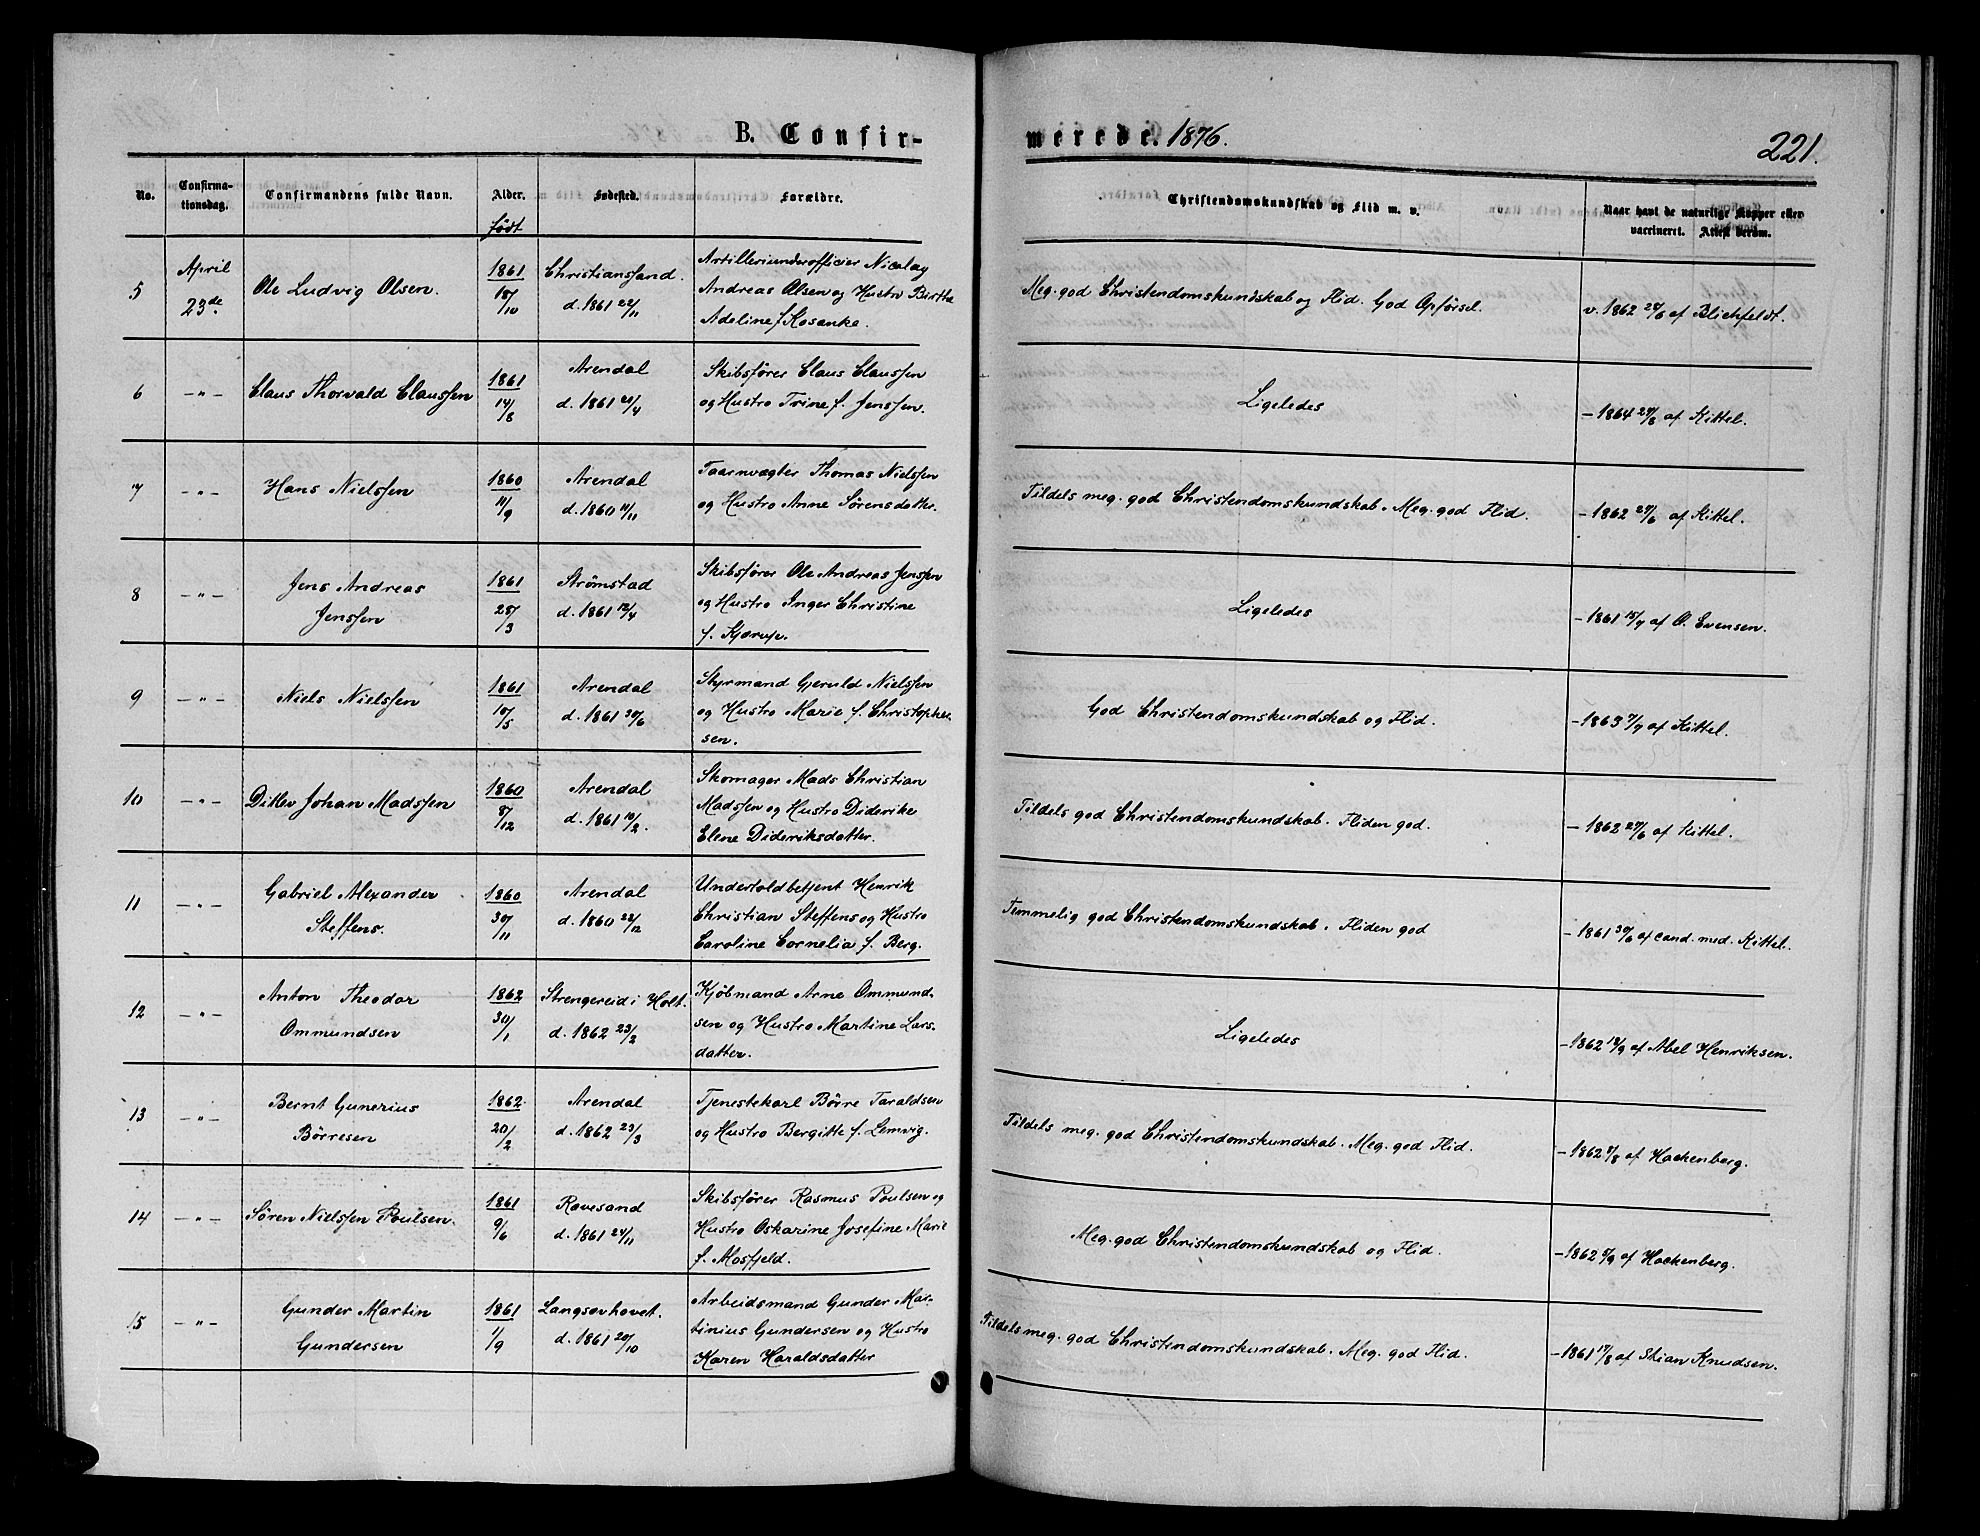 B. Confir-
merede. 1876.
221.
No.
Confirma-
tionsdag.
Confirmandens fulde Navn.
Alder.
født
Fødested.
Forældre.
Christendomskundskab og Flid m. v.
Naar havt de naturlige Kopper eller
vaccineret. Attest derom.
5
April
23de
Ole Ludvig Olsen.
1861
18/10
Christianssand.
d. 1861 22/11
Artilleriunderofficier Nicolay
Andreas Olsen og Hustro Birthe
Adeline f. Kosanke.
Meg. god Christendomskundskab og Flid. God Opførsel.
v. 1862 28/6 af Blichfeldt.
6
—"—
Claus Thorvald Claussen
1861
14/8
Arendal
d. 1861 21/4
Skibsfører Claus Claussen
og Hustro Trine f. Jenssen.
Ligeledes
— 1864 29/8 af Kittel.
7
—"—
Hans Nielssen
1860
11/9
Arendal
d. 1860 11/11
Taarnvægter Thomas Nielssen
og Hustro Anne Sørensdatter.
Tildels meg. god Christendomskundskab. Meg. god Flid.
— 1862 27/6 af Kittel.
8
—"—
Jens Andreas
Jenssen
1861
28/3
Strømstad
d. 1861 12/4
Skibsfører Ole Andreas Jenssen
og Hustro Inger Christine
f. Kjørup.
Ligeledes
— 1861 15/7 af O. Evensen.
9
—"—
Niels Nielssen
1861
10/5
Arendal
d. 1861 30/6
Styrmand Gjeruld Nielssen
og Hustro Marie f. Christopher-
sen.
God Christendomskundskab og Flid.
— 1863 7/7 af Kittel.
10
—"—
Ditlev Johan Madssen
1860
8/12
Arendal
d. 1861 10/2.
Skomager Mads Christian
Madssen og Hustro Diderike
Elene Dideriksdatter.
Tildels god Christendomskundskab. Fliden god.
— 1862 27/6 af Kittel.
11
—"—
Gabriel Alexander
Steffens.
1860
30/11
Arendal
d. 1860 22/12
Undertoldbetjent Henrik
Christian Steffens og Hustro
Caroline Cornelia f. Berg.
Temmelig god Christendomskundskab. Fliden god
— 1861 30/6 af cand. med. Kittel.
12
—"—
Anton Theodor
Ommundsen
1862
30/1
Strengereid i Holt.
d. 1862 23/2
Kjøbmand Arne Ommund-
sen og Hustro Martine Lars-
datter.
Ligeledes
— 1862 12/9 af Abel Henriksen.
13
—"—
Bernt Gunerius
Børresen
1862
20/2
Arendal
d. 1862 23/3
Tjenestekarl Børre Taraldsen
og Hustro Bergitte f. Lemvig.
Tildels meg. god Christendomskundskab. Meg. god Flid.
— 1862 /8 af Hackenberg.
14
—"—
Søren Nielssen Poulsen.
1861
9/6
Revesand
d. 1861 24/11
Skibsfører Rasmus Poulsen og
Hustro Oskarine Josefine Marie
f. Mosfjeld.
Meg. god Christendomskundskab og Flid.
— 1862 /9 af Hackenberg.
15
—"—
Gunder Martin
Gundersen
1861
1/9
Langsævhovet.
d. 1861 20/10
Arbeidsmand Gunder Mar-
tinius Gundersen og Hustro
Karen Haraldsdatter
Tildels meg. god Christendomskundskab. Meg. god Flid.
— 1861 17/8 af Stian Knudsen.